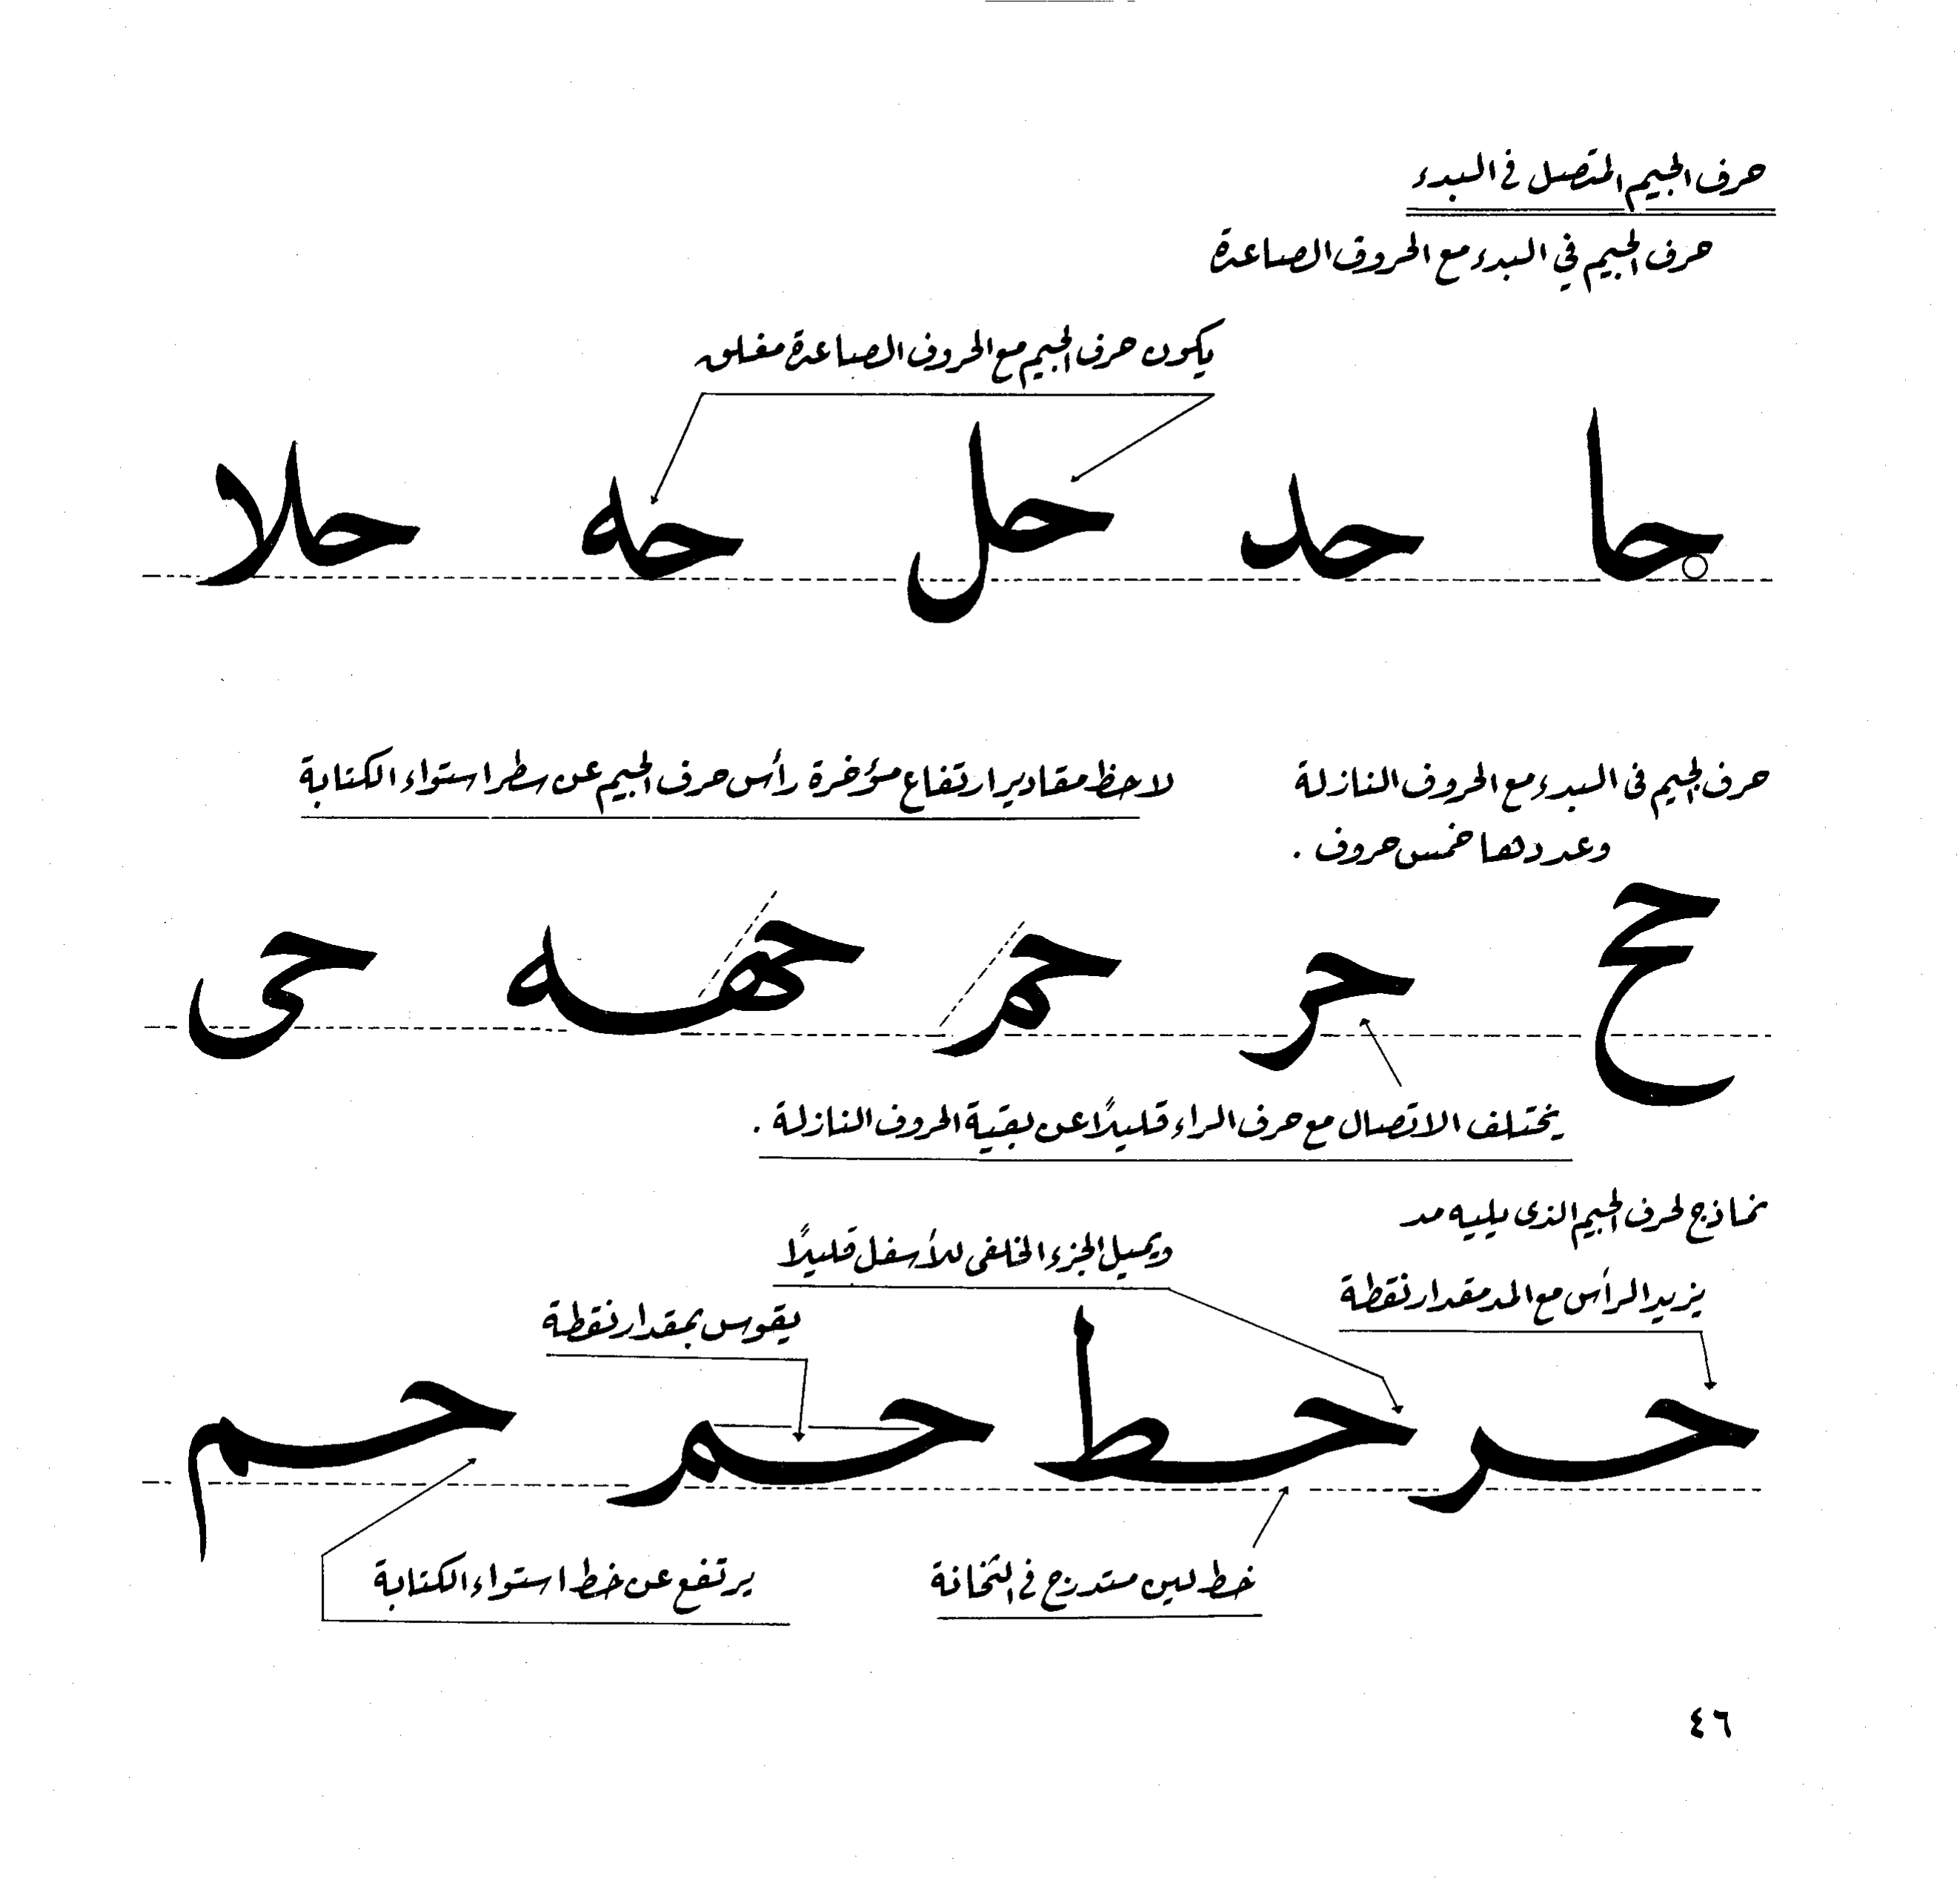 حرف الجيم المتصل في البدء
حرف الجيم في البدء مع الحروف الصاعدة
يكون حرف الجيم مع الحروف الصاعدة مغلق
حا حد حل حه حلا
حرف الجيم في البدء مع الحروف النازلة
وعددها خمس حروف .
لاحظ مقادير ارتفاع مؤخرة رأس حرف الجيم عن سطر استواء الكتابة
حح حر حم حهه حى
يختلف الاتصال مع حرف الراء قليلاً عن بقية الحروف النازلة .
نماذج لحرف الجيم الذى يليه مد
يزيد الرأس مع المد مقدار نقطة
ويميل الجزء الخلفى للأسفل قليلاً
يقوس بمقدار نقطة
حر حط حم حم
خط لين متدرج في الثخانة
يرتفع عن خط استواء الكتابة
٤٦